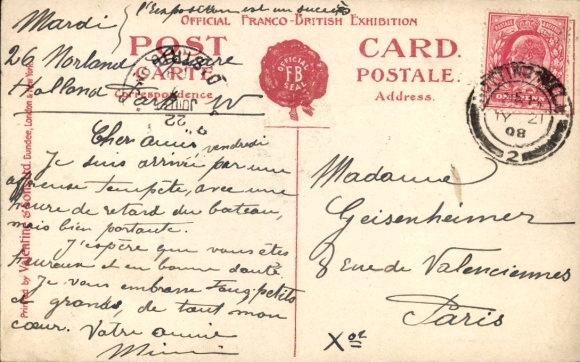 l'exposition est un succès
Mardi
OFFICIAL FRANCO-BRITISH EXHIBITION
POST CARD.
CARTE POSTALE.
Correspondence. Address.
OFFICIAL
FB
SEAL
26 Norland Square
Holland Park W
Chers amis
vendredi
Je suis arrivée par une
affreuse tempête, avec une
heure de retard du bateau,
mais bien portante.
J'espère que vous êtes
heureux et en bonne santé
Je vous embrasse tous petits
et grands, de tout mon
cœur. Votre amie
Mimi
Madame
Geisenheimer
8 rue de Valenciennes
Paris
Xoe
ONE PENNY
21
08
2
22
Printed by Valentine & Sons Ltd. Dundee, London & New York